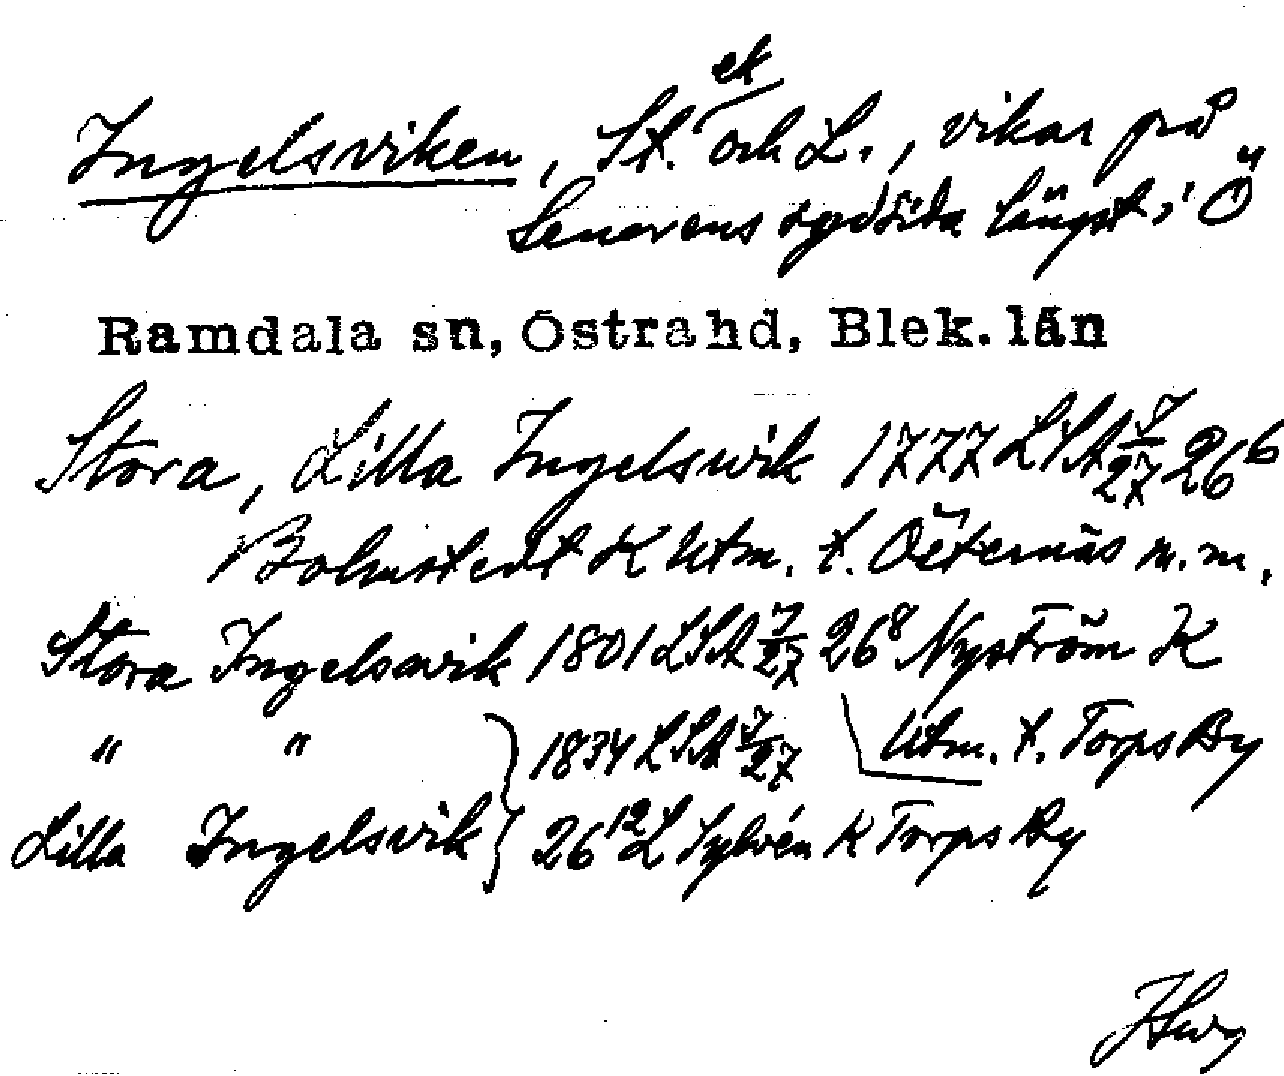 ek
Ingelsviken, St. och L., vikar på
Senorens sydsida längst i Ö
Ramdala sn, Östra hd, Blek. län
Stora, Lilla Ingelswik 1777 LSA 7/27 26⁶
Bolmstedt K Utm. t. Östernäs m. m.
Stora Ingelswik 1801 LSA 7/27 26⁸ Nyström K
" " } 1834 LSA 7/27 Utm. t. Torps By
Lilla Ingelsvik } 26¹² L Sylvén K Torps By